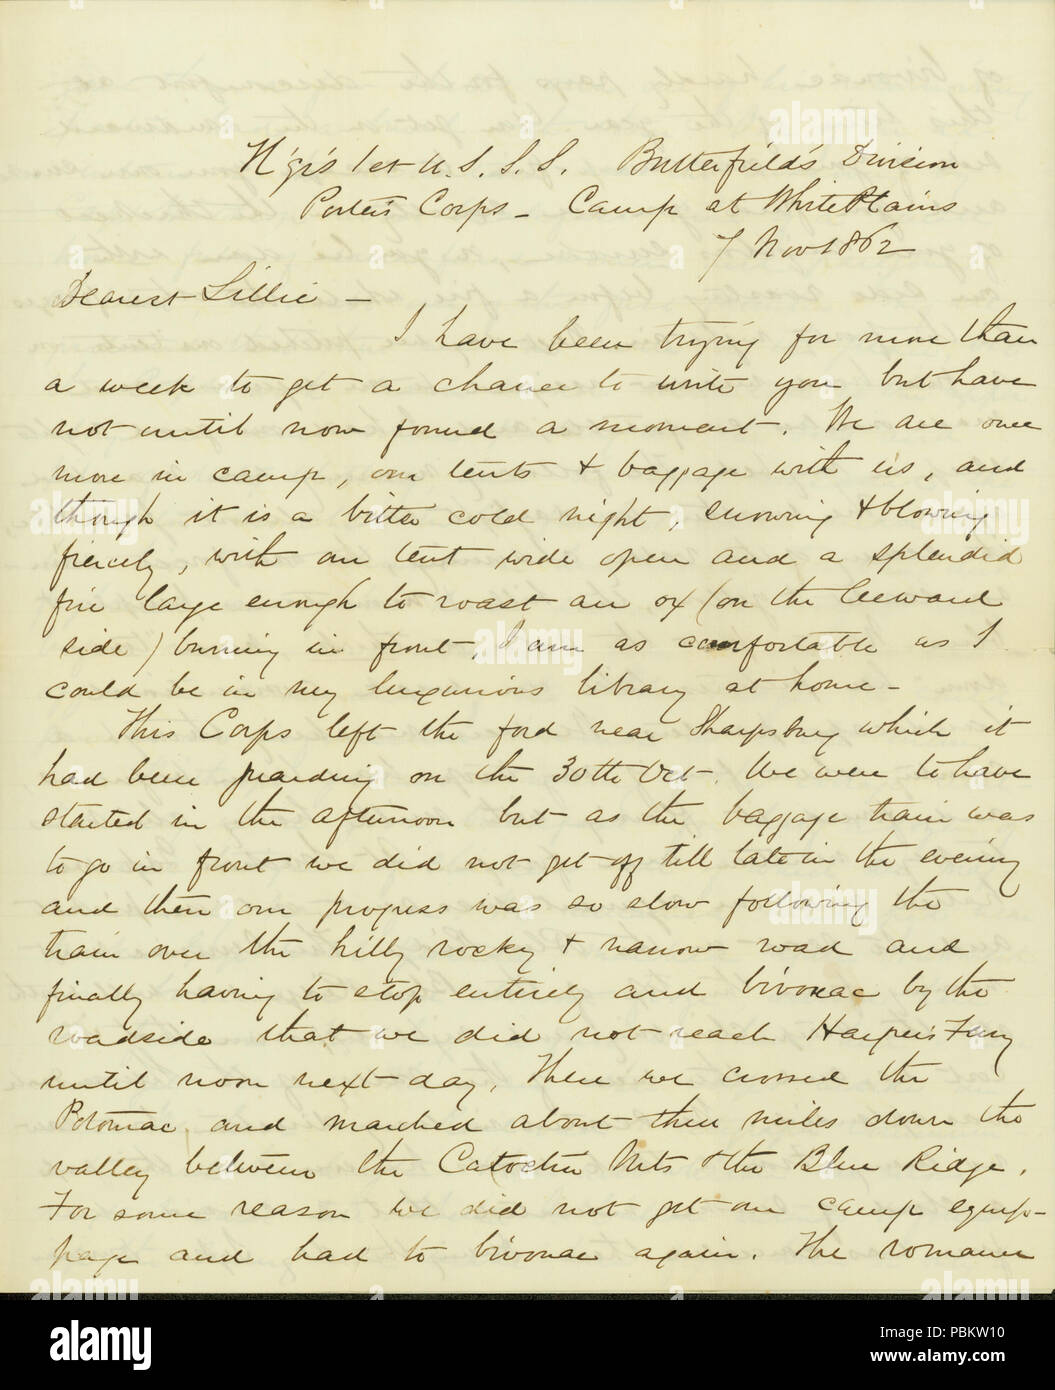 H'q'rs 1st U.S.S.S. Butterfield's Division
Porter's Corps - Camp at White Plains
7 Nov 1862
Dearest Lillie -
I have been trying for more than
a week to get a chance to write you but have
not until now found a moment. We are once
more in camp, our tents & baggage with us, and
though it is a bitter cold night, snowing & blowing
fiercely, with our tent wide open and a splendid
fire large enough to roast an ox (on the leeward
side) burning in front, I am as comfortable as I
could be in my luxurious library at home -
This Corps left the ford near Sharpsburg which it
had been guarding on the 30th Oct. We were to have
started in the afternoon but as the baggage train was
to go in front we did not get off till late in the evening
and then our progress was so slow following the
train over the hilly rocky & narrow road and
finally having to stop entirely and bivouac by the
roadside that we did not reach Harper's Ferry
until noon next day. There we crossed the
Potomac and marched about three miles down the
valley between the Catoctin Mts & the Blue Ridge.
For some reason we did not get our camp equip-
page and had to bivouac again. The romance
alamy
Image ID: PBKW10
www.alamy.com